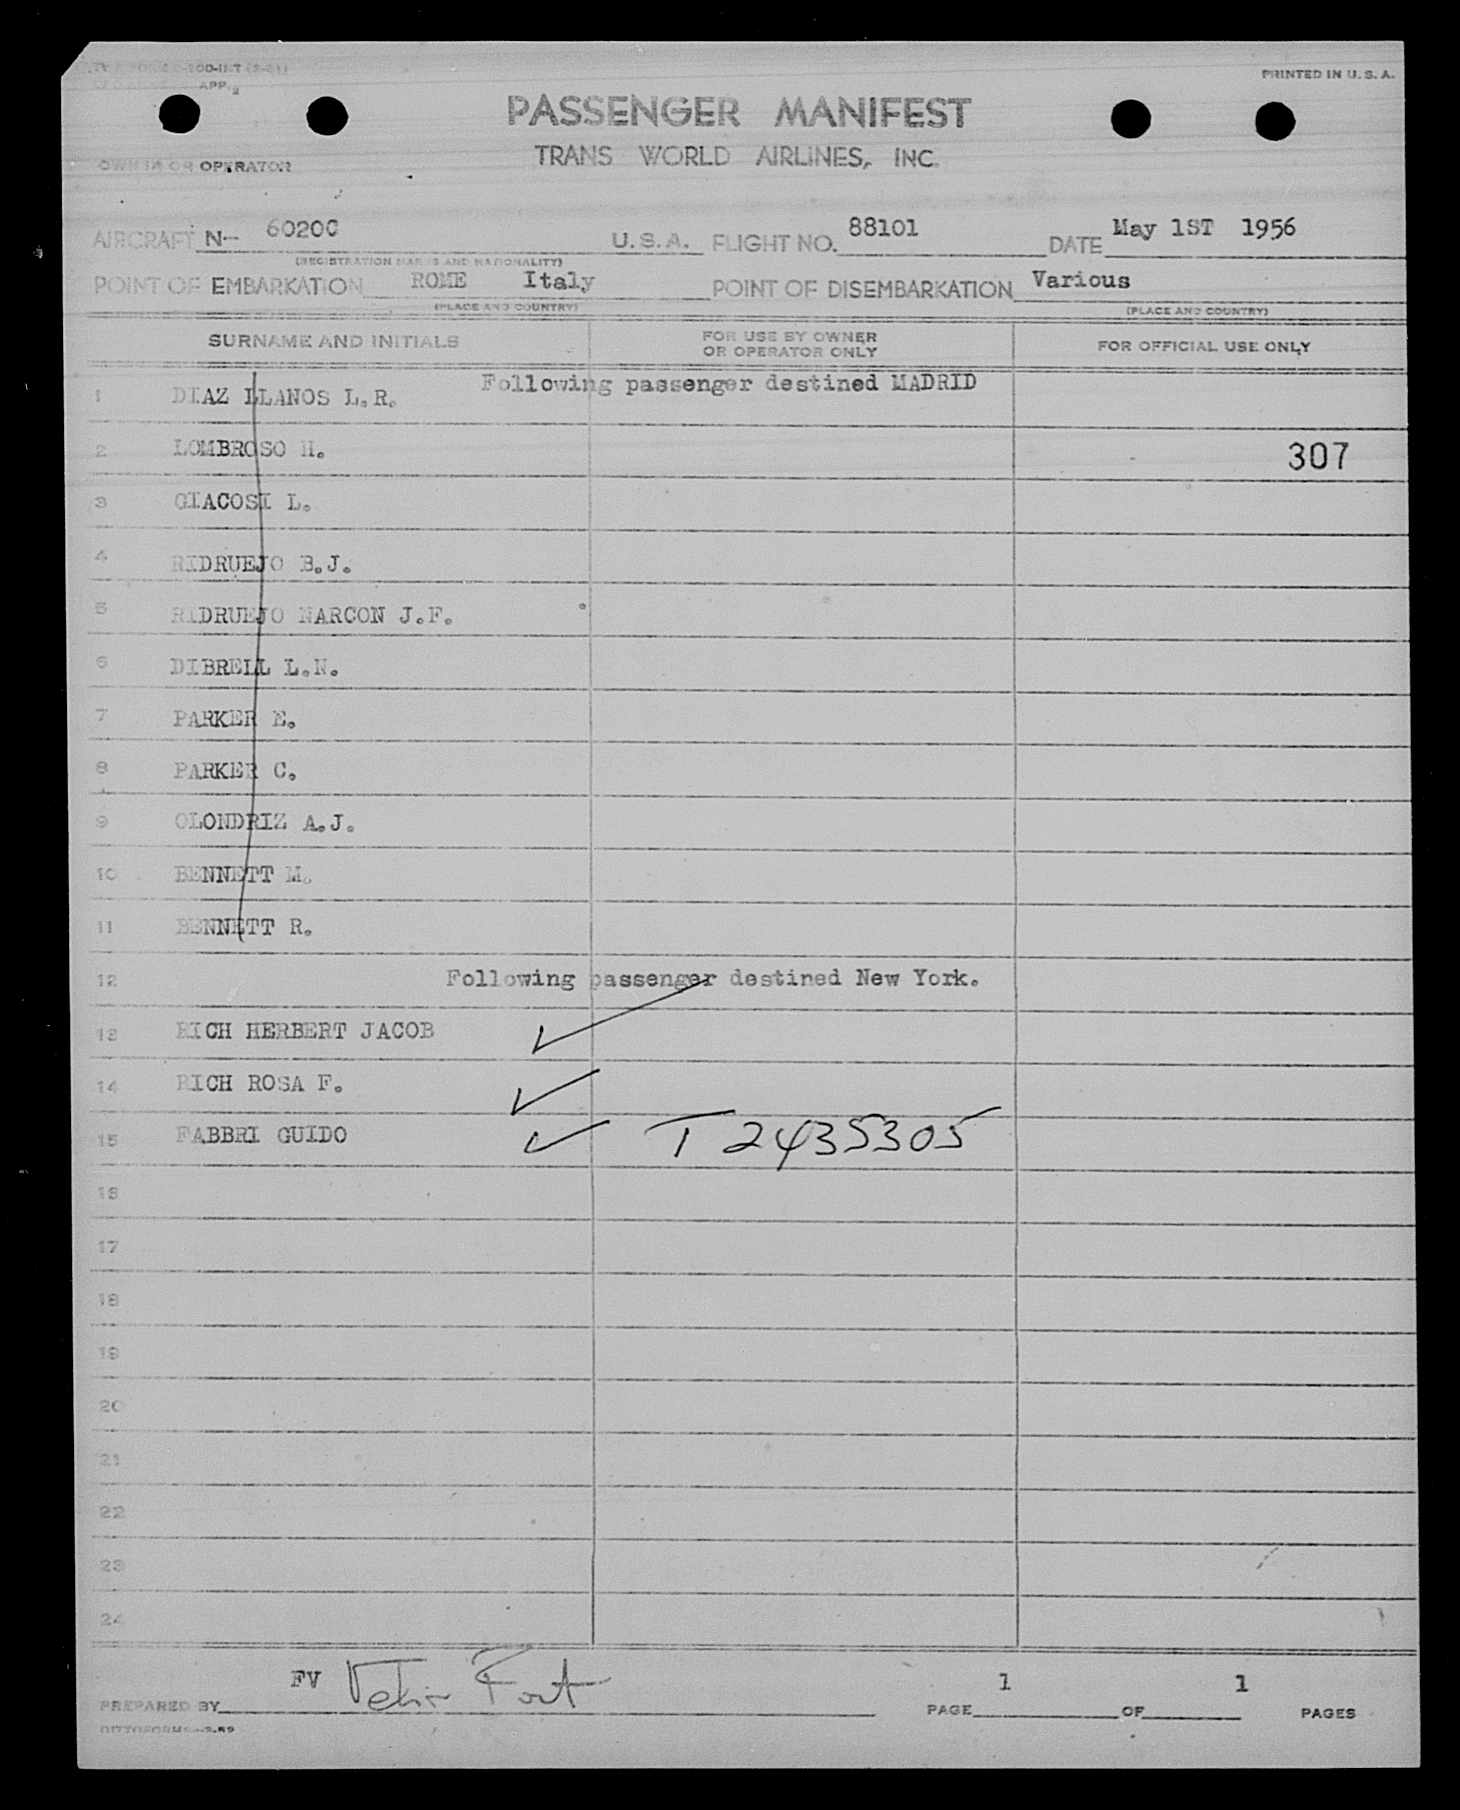 PRINTED IN U.S.A.
PASSENGER MANIFEST
TRANS WORLD AIRLINES, INC.
OWNER OR OPERATOR
AIRCRAFT N-- 6020C U.S.A. FLIGHT NO. 88101 DATE May 1ST 1956
(REGISTRATION MARKS AND NATIONALITY)
POINT OF EMBARKATION ROME Italy POINT OF DISEMBARKATION Various
(PLACE AND COUNTRY) (PLACE AND COUNTRY)
SURNAME AND INITIALS FOR USE BY OWNER OR OPERATOR ONLY FOR OFFICIAL USE ONLY
Following passenger destined MADRID
1 DIAZ LLANOS L.R.
2 LOMBROSO H. 307
3 GIACOSI L.
4 RIDRUEJO B.J.
5 RIDRUEJO NARCON J.F.
6 DIBRELL L.N.
7 PARKER E.
8 PARKER C.
9 OLONDRIZ A.J.
10 BENNETT M.
11 BENNETT R.
12 Following passenger destined New York.
13 RICH HERBERT JACOB
14 RICH ROSA F.
15 FABBRI GUIDO T 2435305
16
17
18
19
20
21
22
23
24
PREPARED BY FV PAGE 1 OF 1 PAGES